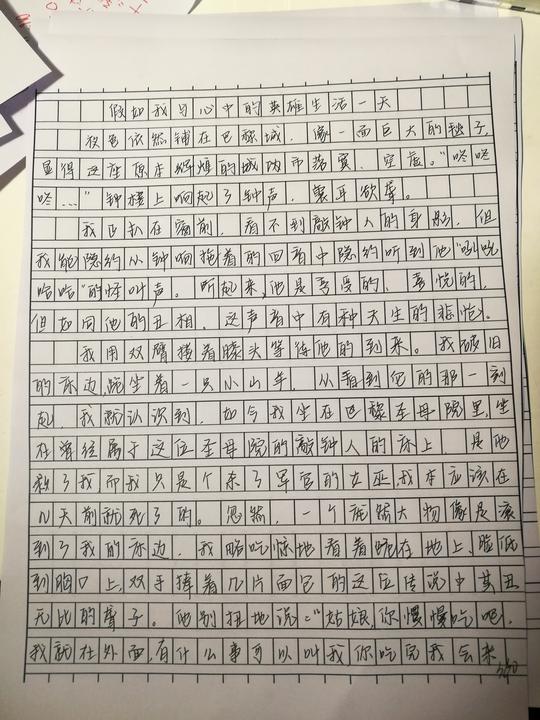 假如我与心中的英雄生活一天
夜色依然铺在巴黎城，像一面巨大的被子，
显得这座原本辉煌的城市落寞、空虚。"咚咚
咚……"钟楼上响起了钟声，震耳欲聋。
我正趴在窗前，看不到敲钟人的身影，但
我能隐约从钟响接着的回音中隐约听到他"吼吼
哈哈"的怪叫声。听起来，他是享受的、喜悦的，
但如同他的丑相，这声音中有种天生的悲怆。
我用双臂搂着膝头等待他的到来。我破旧
的床边，跪坐着一只小山羊，从看到它的那一刻
起，我就认识到，如今我坐在巴黎圣母院里，坐
在曾经属于这位圣母院的敲钟人的床上，是他
救了我，而我只是个杀了军官的女巫，我本应该在
N天前就死了的。忽然，一个庞然大物像是滚
到了我的床边，我略吃惊地看着跪在地上、脸低
到胸口上，双手捧着几片面包的这位传说中其丑
无比的聋子。他别扭地说："姑娘，你慢慢吃吧，
我就在外面，有什么事可以叫我，你吃完我会来